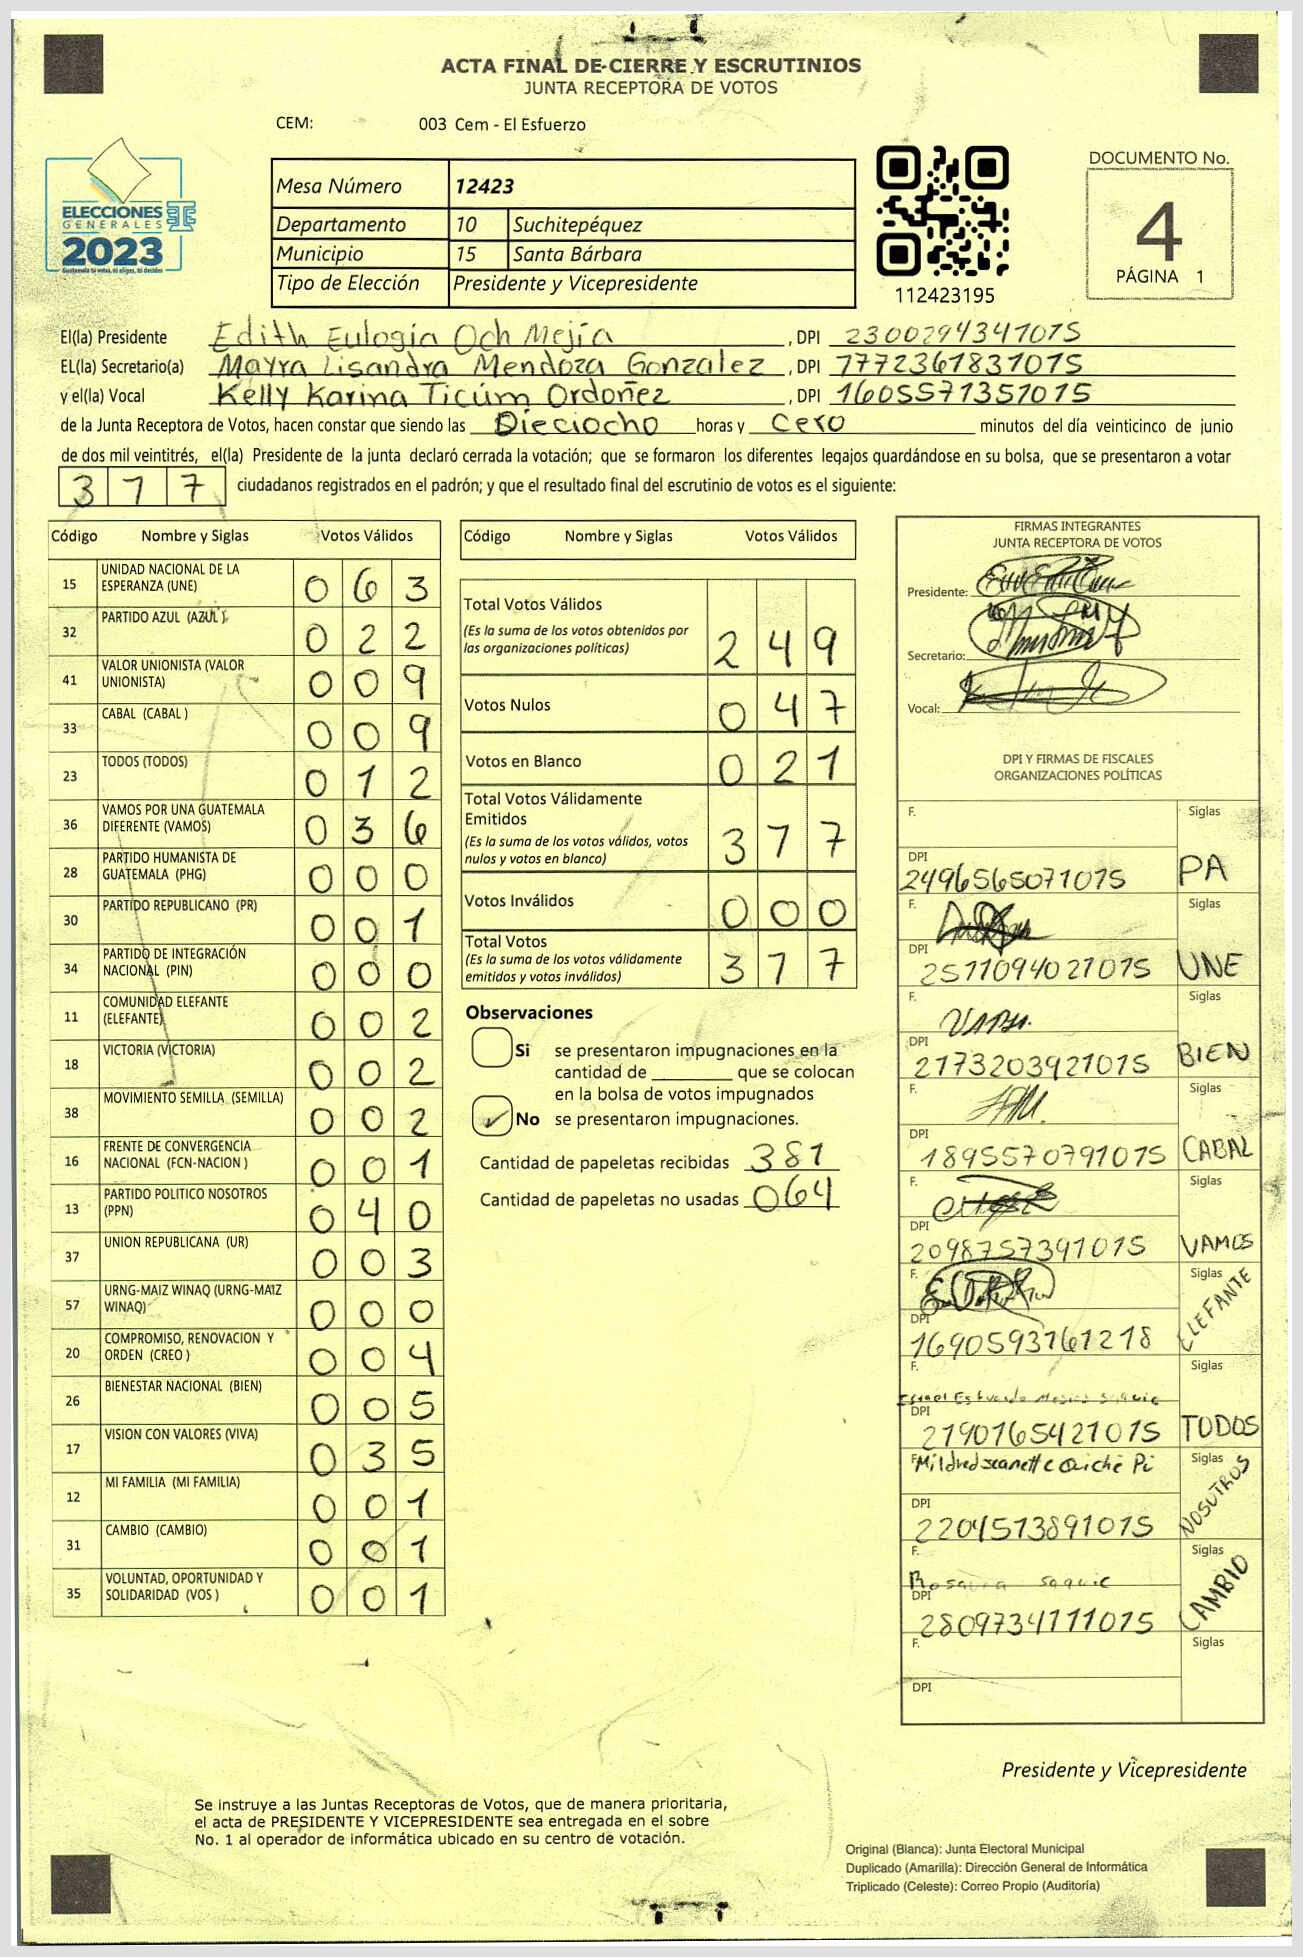 ACTA FINAL DE CIERRE Y ESCRUTINIOS
JUNTA RECEPTORA DE VOTOS
CEM: 003 Cem - El Esfuerzo
ELECCIONES
GENERALES
2023
Guatemala tú votas, tú eliges, tú decides
Mesa Número 12423
Departamento 10 Suchitepéquez
Municipio 15 Santa Bárbara
Tipo de Elección Presidente y Vicepresidente
112423195
DOCUMENTO No.
4
PÁGINA 1
El(la) Presidente Edith Eulogia Och Mejía, DPI 2300294341015
EL(la) Secretario(a) Mayra Lisandra Mendoza Gonzalez, DPI 1772361831015
y el(la) Vocal Kelly Karina Ticúm Ordoñez, DPI 1605571351015
de la Junta Receptora de Votos, hacen constar que siendo las Dieciocho horas y cero minutos del día veinticinco de junio
de dos mil veintitrés, el(la) Presidente de la junta declaró cerrada la votación; que se formaron los diferentes legajos quardándose en su bolsa, que se presentaron a votar
377 ciudadanos registrados en el padrón; y que el resultado final del escrutinio de votos es el siguiente:
Código Nombre y Siglas Votos Válidos
15 UNIDAD NACIONAL DE LA ESPERANZA (UNE) 063
32 PARTIDO AZUL (AZUL) 022
41 VALOR UNIONISTA (VALOR UNIONISTA) 009
33 CABAL (CABAL ) 009
23 TODOS (TODOS) 012
36 VAMOS POR UNA GUATEMALA DIFERENTE (VAMOS) 036
28 PARTIDO HUMANISTA DE GUATEMALA (PHG) 000
30 PARTIDO REPUBLICANO (PR) 001
34 PARTIDO DE INTEGRACIÓN NACIONAL (PIN) 000
11 COMUNIDAD ELEFANTE (ELEFANTE) 002
18 VICTORIA (VICTORIA) 002
38 MOVIMIENTO SEMILLA (SEMILLA) 002
16 FRENTE DE CONVERGENCIA NACIONAL (FCN-NACION ) 001
13 PARTIDO POLITICO NOSOTROS (PPN) 040
37 UNION REPUBLICANA (UR) 003
57 URNG-MAIZ WINAQ (URNG-MAIZ WINAQ) 000
20 COMPROMISO, RENOVACION Y ORDEN (CREO ) 004
26 BIENESTAR NACIONAL (BIEN) 005
17 VISION CON VALORES (VIVA) 035
12 MI FAMILIA (MI FAMILIA) 001
31 CAMBIO (CAMBIO) 001
35 VOLUNTAD, OPORTUNIDAD Y SOLIDARIDAD (VOS ) 001
Código Nombre y Siglas Votos Válidos
Total Votos Válidos 249
(Es la suma de los votos obtenidos por
las organizaciones politicas)
Votos Nulos 047
Votos en Blanco 021
Total Votos Válidamente
Emitidos 377
(Es la suma de los votos válidos, votos
nulos y votos en blanco)
Votos Inválidos 000
Total Votos 377
(Es la suma de los votos válidamente
emitidos y votos inválidos)
Observaciones
Si se presentaron impugnaciones en la
cantidad de ________ que se colocan
en la bolsa de votos impugnados
No se presentaron impugnaciones.
Cantidad de papeletas recibidas 381
Cantidad de papeletas no usadas 064
FIRMAS INTEGRANTES
JUNTA RECEPTORA DE VOTOS
Presidente:
Secretario:
Vocal:
DPI Y FIRMAS DE FISCALES
ORGANIZACIONES POLÍTICAS
F. Siglas
DPI 2496565071015 PA
F. Siglas
DPI 2511094021015 UNE
F. Siglas
DPI 2173203921015 BIEN
F. Siglas
DPI 1895570791015 CABAL
F. Siglas
DPI 2098757391015 VAMOS
F. Siglas
DPI 1690593761218 ELEFANTE
F. Siglas
DPI 2190165421015 TODOS
F. Siglas
DPI 2204513891015 NOSOTROS
F. Rosaura Saquic Siglas
DPI 2809734111015 CAMBIO
F. Siglas
DPI
Presidente y Vicepresidente
Se instruye a las Juntas Receptoras de Votos, que de manera prioritaria,
el acta de PRESIDENTE Y VICEPRESIDENTE sea entregada en el sobre
No. 1 al operador de informática ubicado en su centro de votación.
Original (Blanca): Junta Electoral Municipal
Duplicado (Amarilla): Dirección General de Informática
Triplicado (Celeste): Correo Propio (Auditoría)